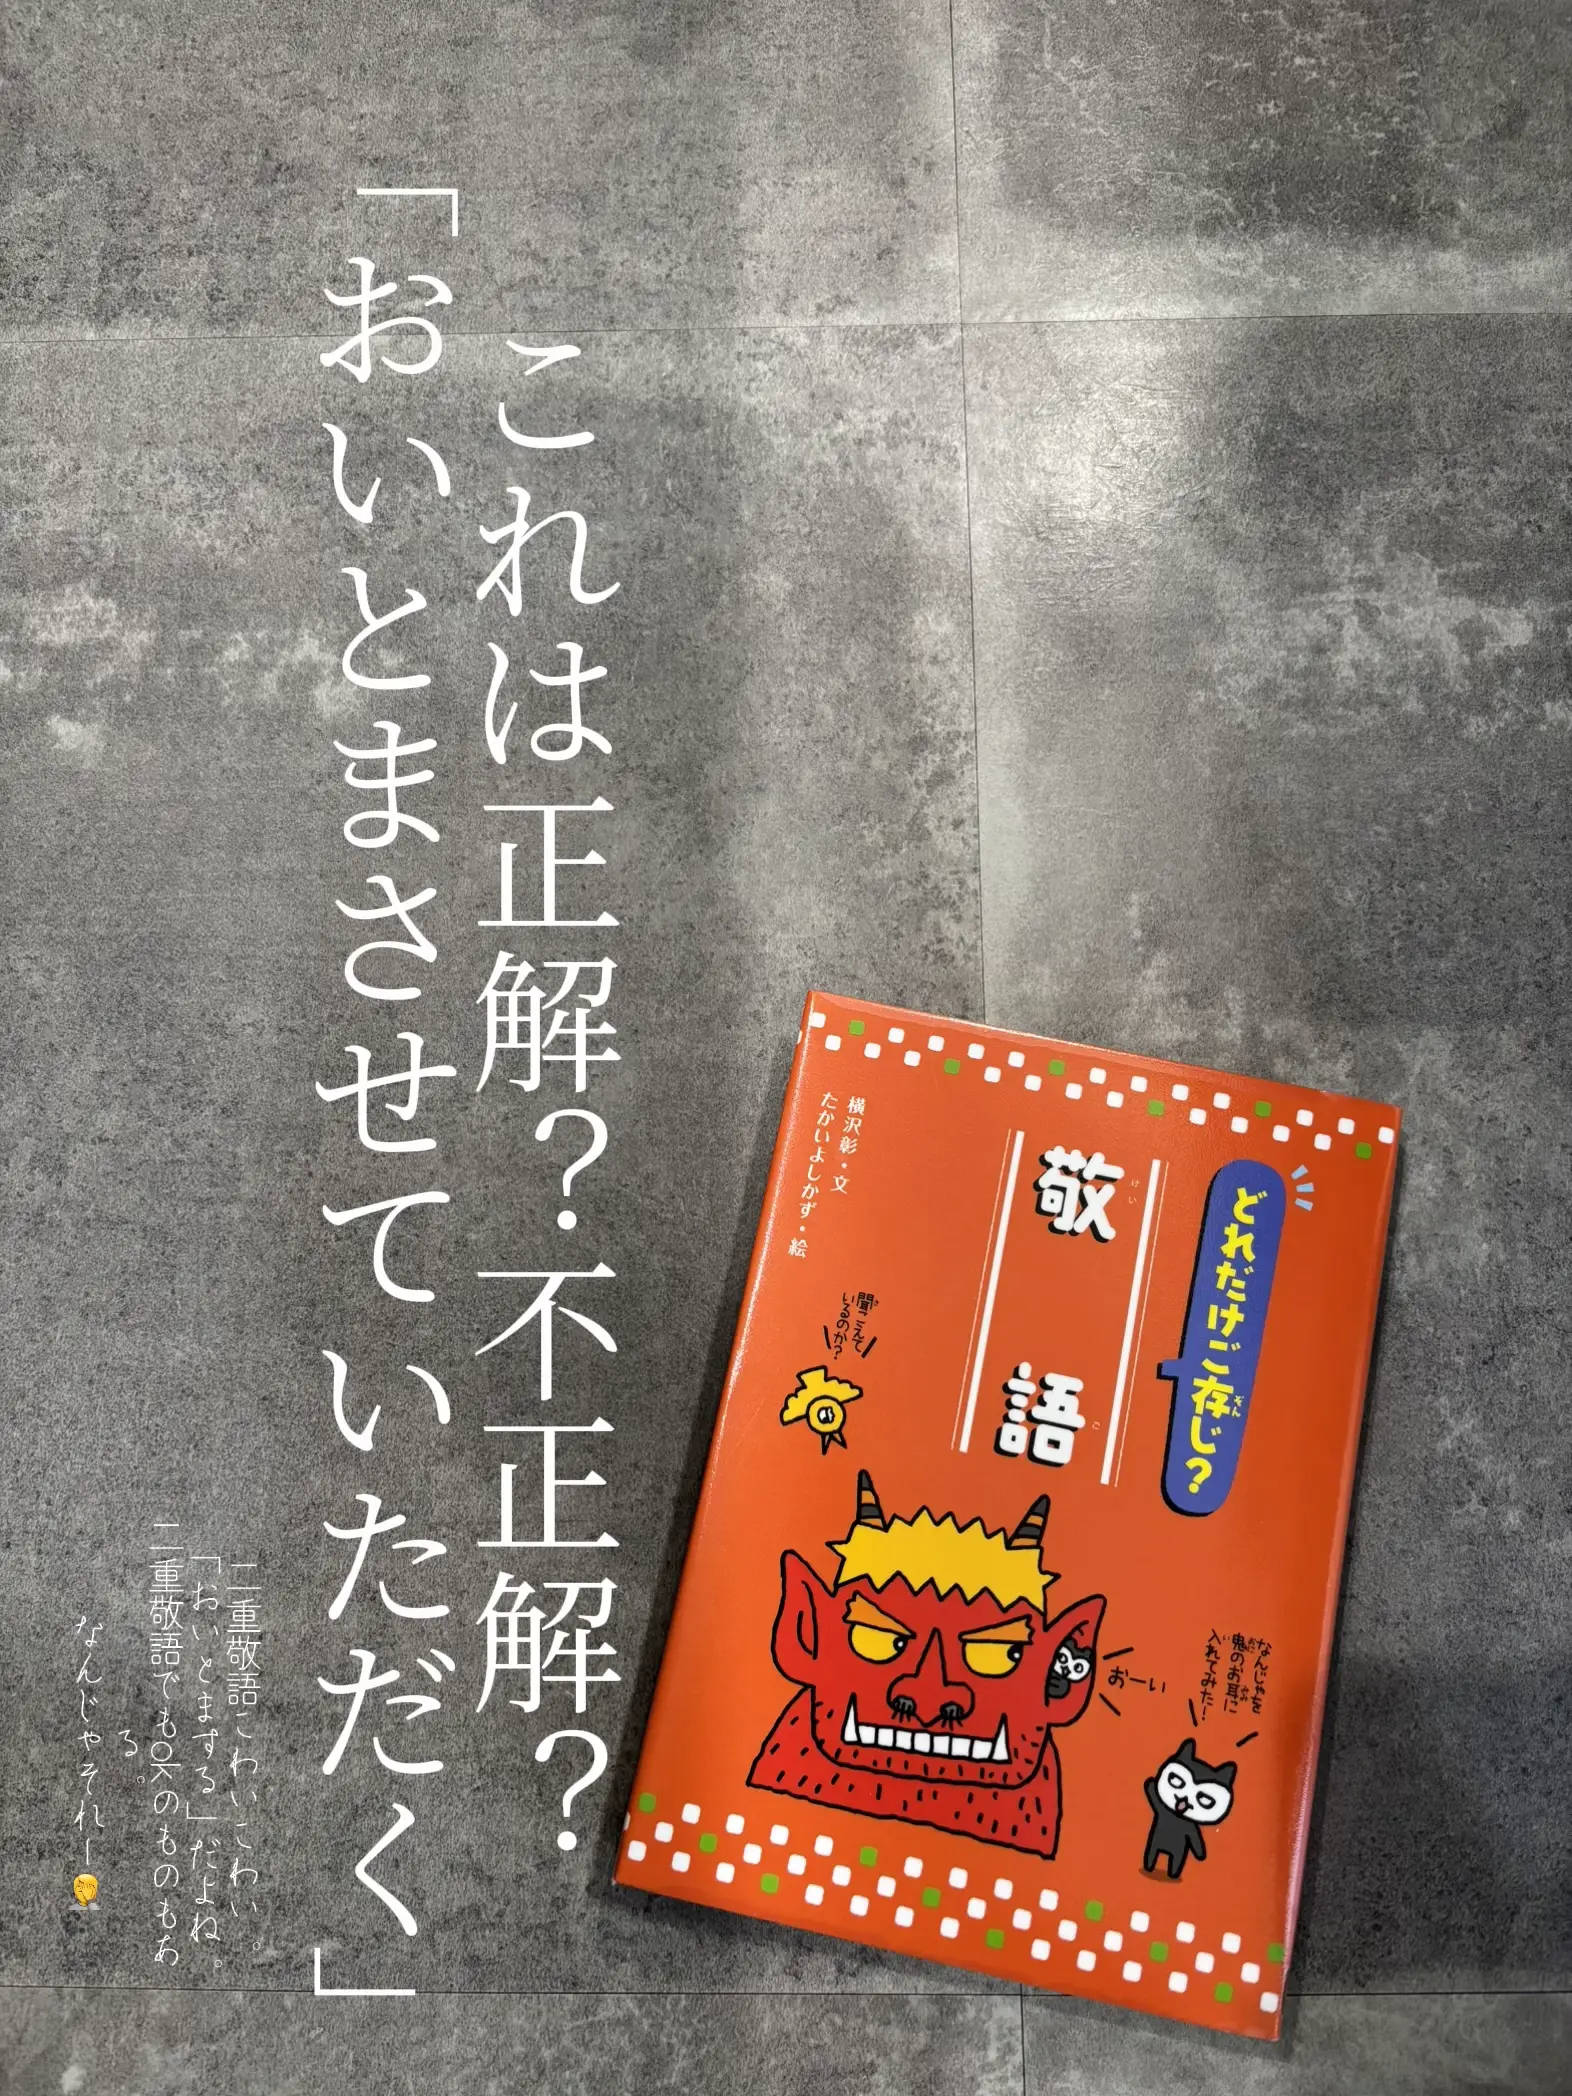 これは正解？不正解？
「おいとまさせていただく」
二重敬語こわいこわい。
「おいとまする」だよね。
二重敬語でもOKのものもあ
る。
なんじゃそれー🤦
どれだけご存じ？
ぞん
敬語
けい
ご
横沢彰・文
たかいよしかず・絵
聞こえて
き
いるのか？
おーい
なんじゃを
鬼のお耳に
おに
みみ
入れてみた！
い